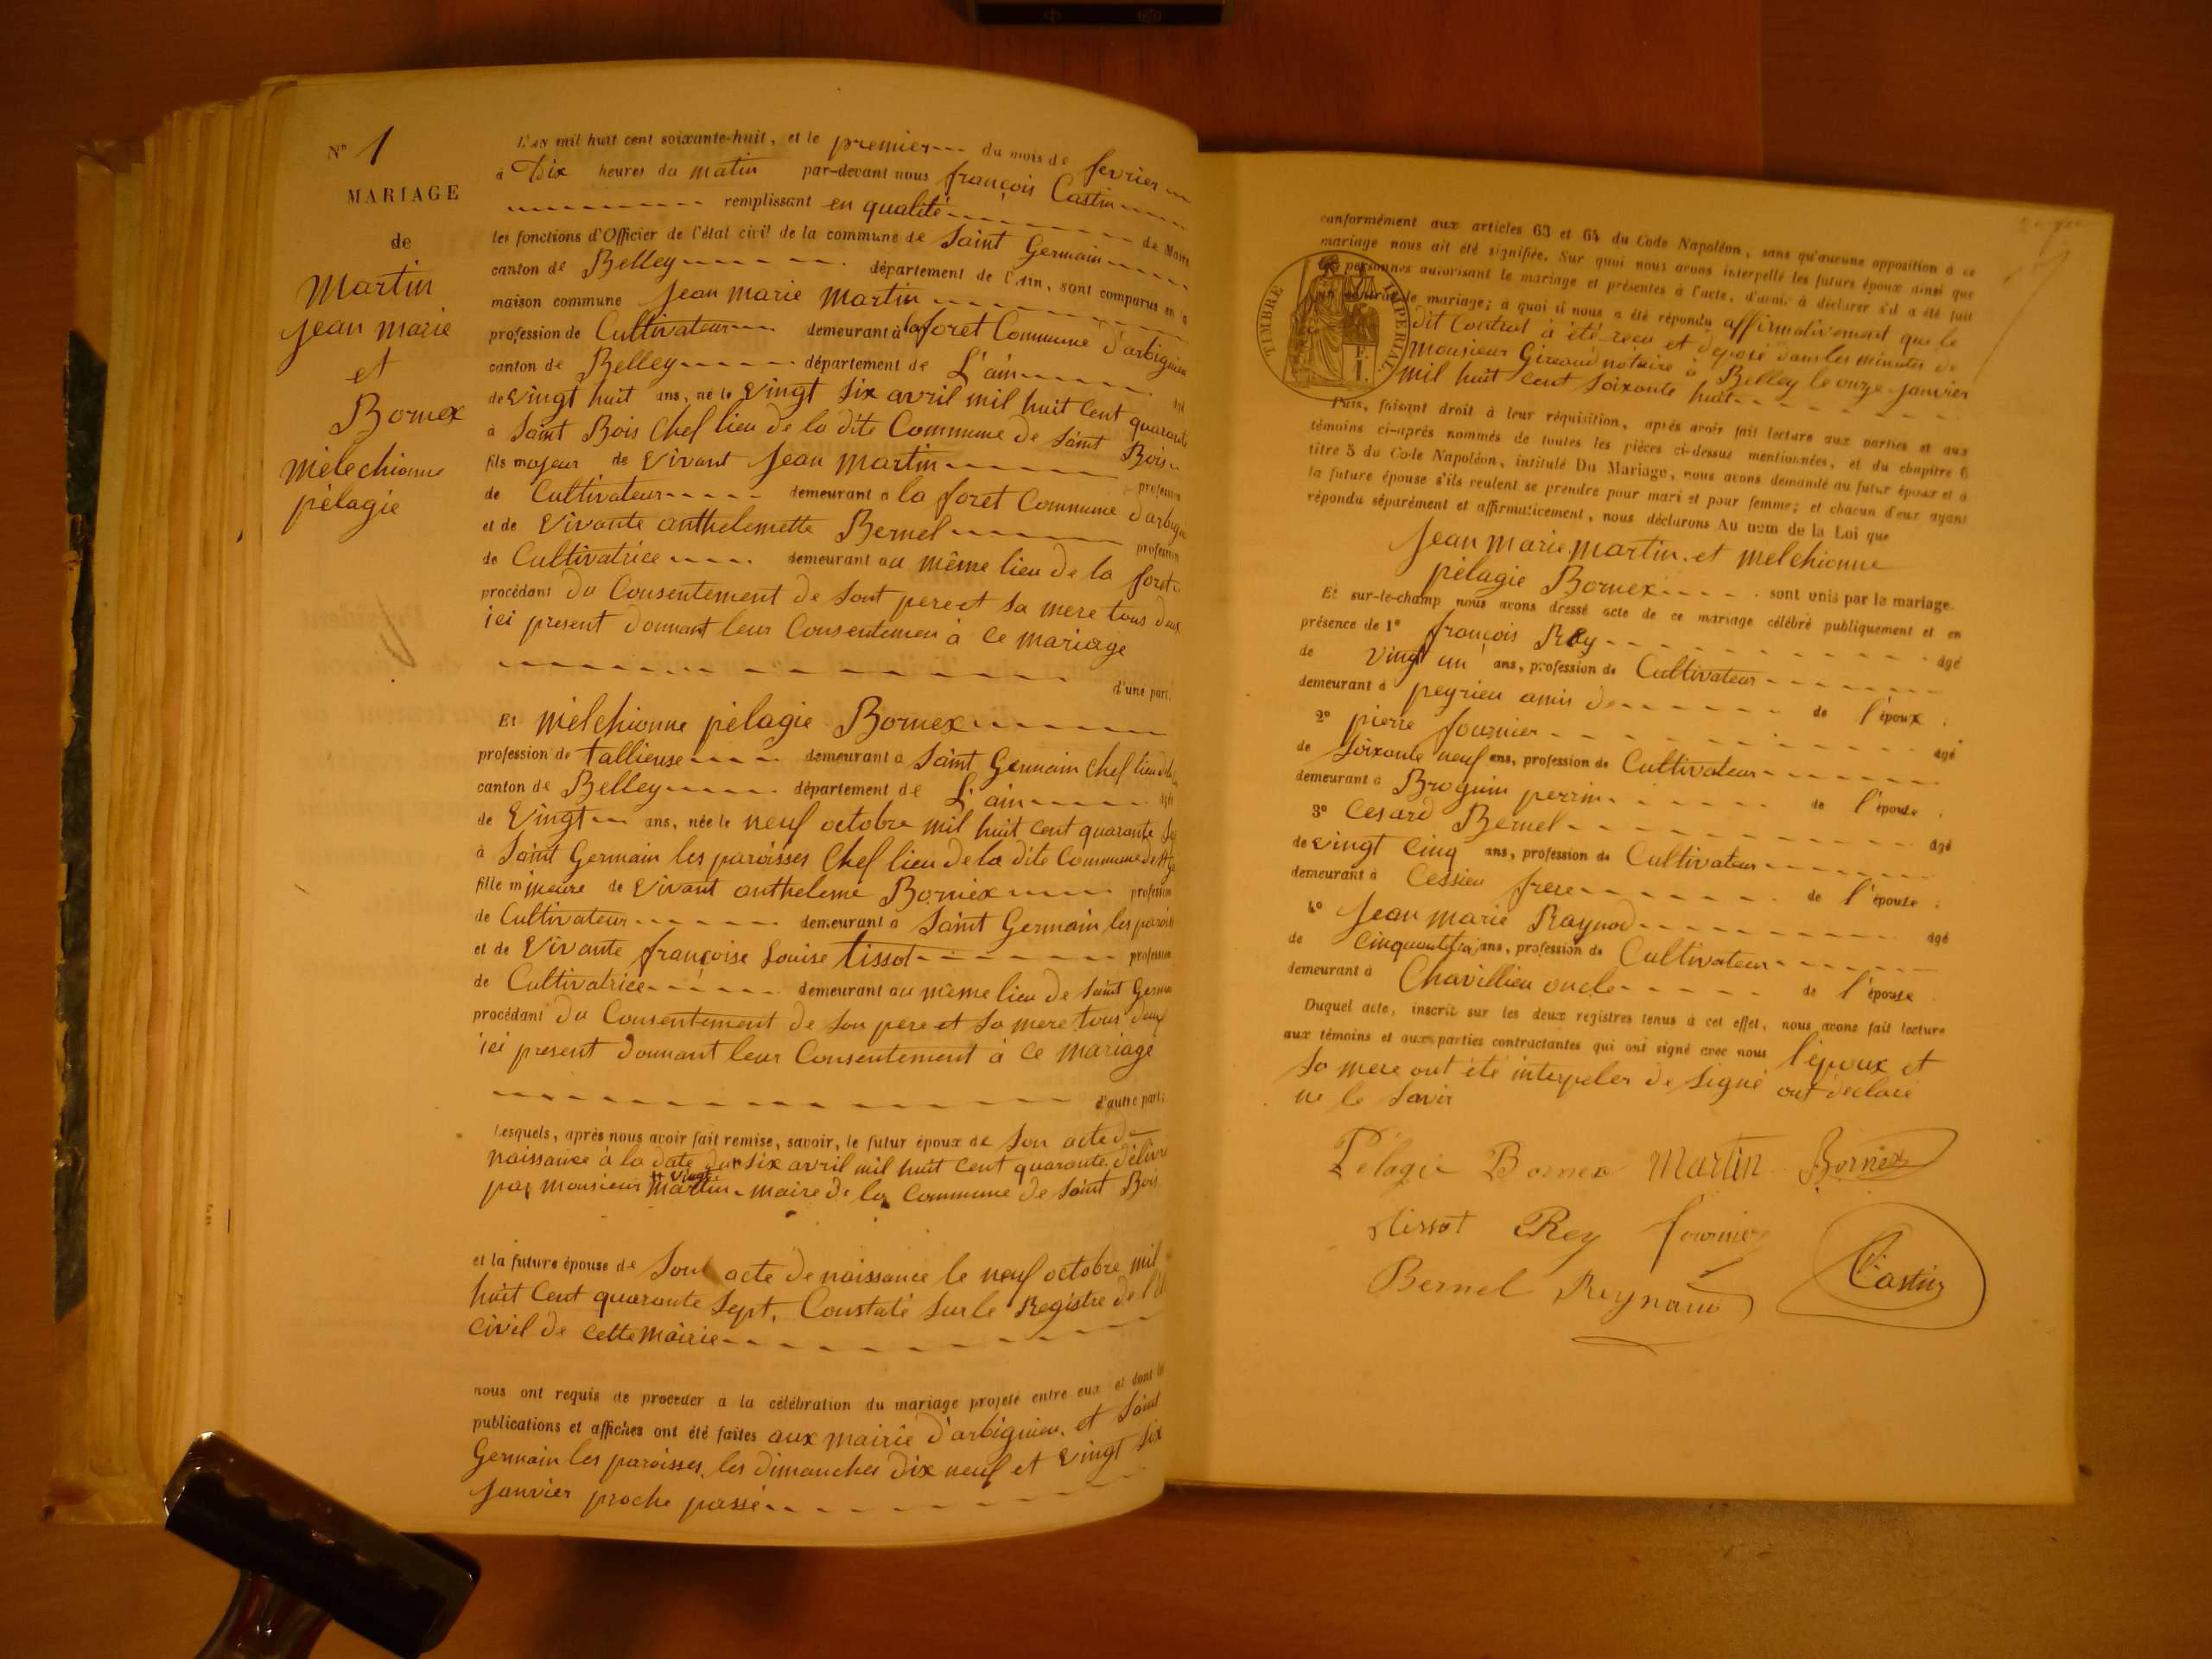 N° 1
MARIAGE
de
Martin
jean marie
et
Bornex
mélechionne
pélagie
L'AN mil huit cent soixante-huit, et le premier du mois de fevrier
à Dix heures du matin par-devant nous françois Castin
remplissant en qualité de Maire
les fonctions d'Officier de l'état civil de la commune de Saint Germain
canton de Belley département de l'Ain, sont comparus en la
maison commune Jean marie Martin
profession de Cultivateur demeurant à la foret Commune d'arbignieu
canton de Belley département de L'ain
de Vingt huit ans, né le Vingt Six avril mil huit Cent quarante
à Saint Bois Chef lieu de la dite Commune de Saint Bois
fils majeur de Vivant Jean Martin profession
de Cultivateur demeurant à la foret Commune d'arbig
et de Vivante anthelemette Bernel profession
de Cultivatrice demeurant au même lieu de la foret
procédant du Consentement de Sont pere et Sa mere tous deux
ici present donnant leur Consentemen à ce mariage
d'une part.
Et mélchionne pélagie Bornex
profession de tallieuse demeurant à Saint Germain Chef lieu
canton de Belley département de L'ain
de Vingt ans, née le neuf octobre mil huit cent quarante
à Saint Germain les paroisses Chef lieu de la dite Commune de
fille mineure de Vivant antheleme Bornex profession
de Cultivateur demeurant à Saint Germain les parois
et de Vivante françoise Louise tissot profession
de Cultivatrice demeurant au même lieu de Saint Germa
procédant du Consentement de Son pere et Sa mere tous deux
ici present donnant leur Consentement à ce mariage
d'autre part;
Lesquels, après nous avoir fait remise, savoir, le futur époux de Son acte de
naissance à la date du Six avril mil huit Cent quarante délivré
Vingt
par monsieur Martin maire de la Commune de Saint Bois
et la future épouse de Sont acte de naissance le neuf octobre mil
huit Cent quarante Sept, Constaté Sur le Registre de l'
Civil de cette Mairie
nous ont requis de procéder à la célébration du mariage projeté entre eux et dont les
publications et affiches ont été faites aux mairie d'arbignieu, et Saint
Germain les paroisses, les dimanches dix neuf et Vingt Six
Janvier proche passé
conformément aux articles 63 et 64 du Code Napoléon, sans qu'aucune opposition à ce
mariage nous ait été signifiée. Sur quoi nous avons interpellé les futurs époux ainsi que
les personnes autorisant le mariage et présentes à l'acte, d'avoir à déclarer s'il a été fait
un contrat de mariage; à quoi il nous a été répondu affirmativement que le
dit Contrat à été reçu et déposé dans les minutes de
Monsieur Giraud notaire à Belley le onze Janvier
mil huit cent Soixante huit
TIMBRE IMPERIAL
Puis, faisant droit à leur réquisition, après avoir fait lecture aux parties et aux
témoins ci-après nommés de toutes les pièces ci-dessus mentionnées, et du chapitre 6
titre 5 du Code Napoléon, intitulé Du Mariage, nous avons demandé au futur époux et à
la future épouse s'ils veulent se prendre pour mari et pour femme; et chacun d'eux ayant
répondu séparément et affirmativement, nous déclarons Au nom de la Loi que
Jean Marie Martin et mélchionne
pélagie Bornex sont unis par le mariage.
Et sur-le-champ nous avons dressé acte de ce mariage célébré publiquement et en
présence de 1° françois Rey âgé
de Vingt un ans, profession de Cultivateur
demeurant à peyrieu amis de de l'époux
2° pierre fournier âgé
de Soixante neuf ans, profession de Cultivateur
demeurant à Brognin perrin de l'épouse
3° Cesard Bernel âgé
de Vingt Cinq ans, profession de Cultivateur
demeurant à Cessieu frere de l'épouse
4° Jean Marie Raynod âgé
de ans, profession de Cultivateur
demeurant à Chavillieu oncle de l'épouse
Duquel acte, inscrit sur les deux registres tenus à cet effet, nous avons fait lecture
aux témoins et aux parties contractantes qui ont signé avec nous l'époux et
Sa mere ont été interpeler de Signé ont déclaré
ne le Savir
Pélagie Bornex Martin Bornex
tissot Rey fournier
Bernel Reynaud Castin